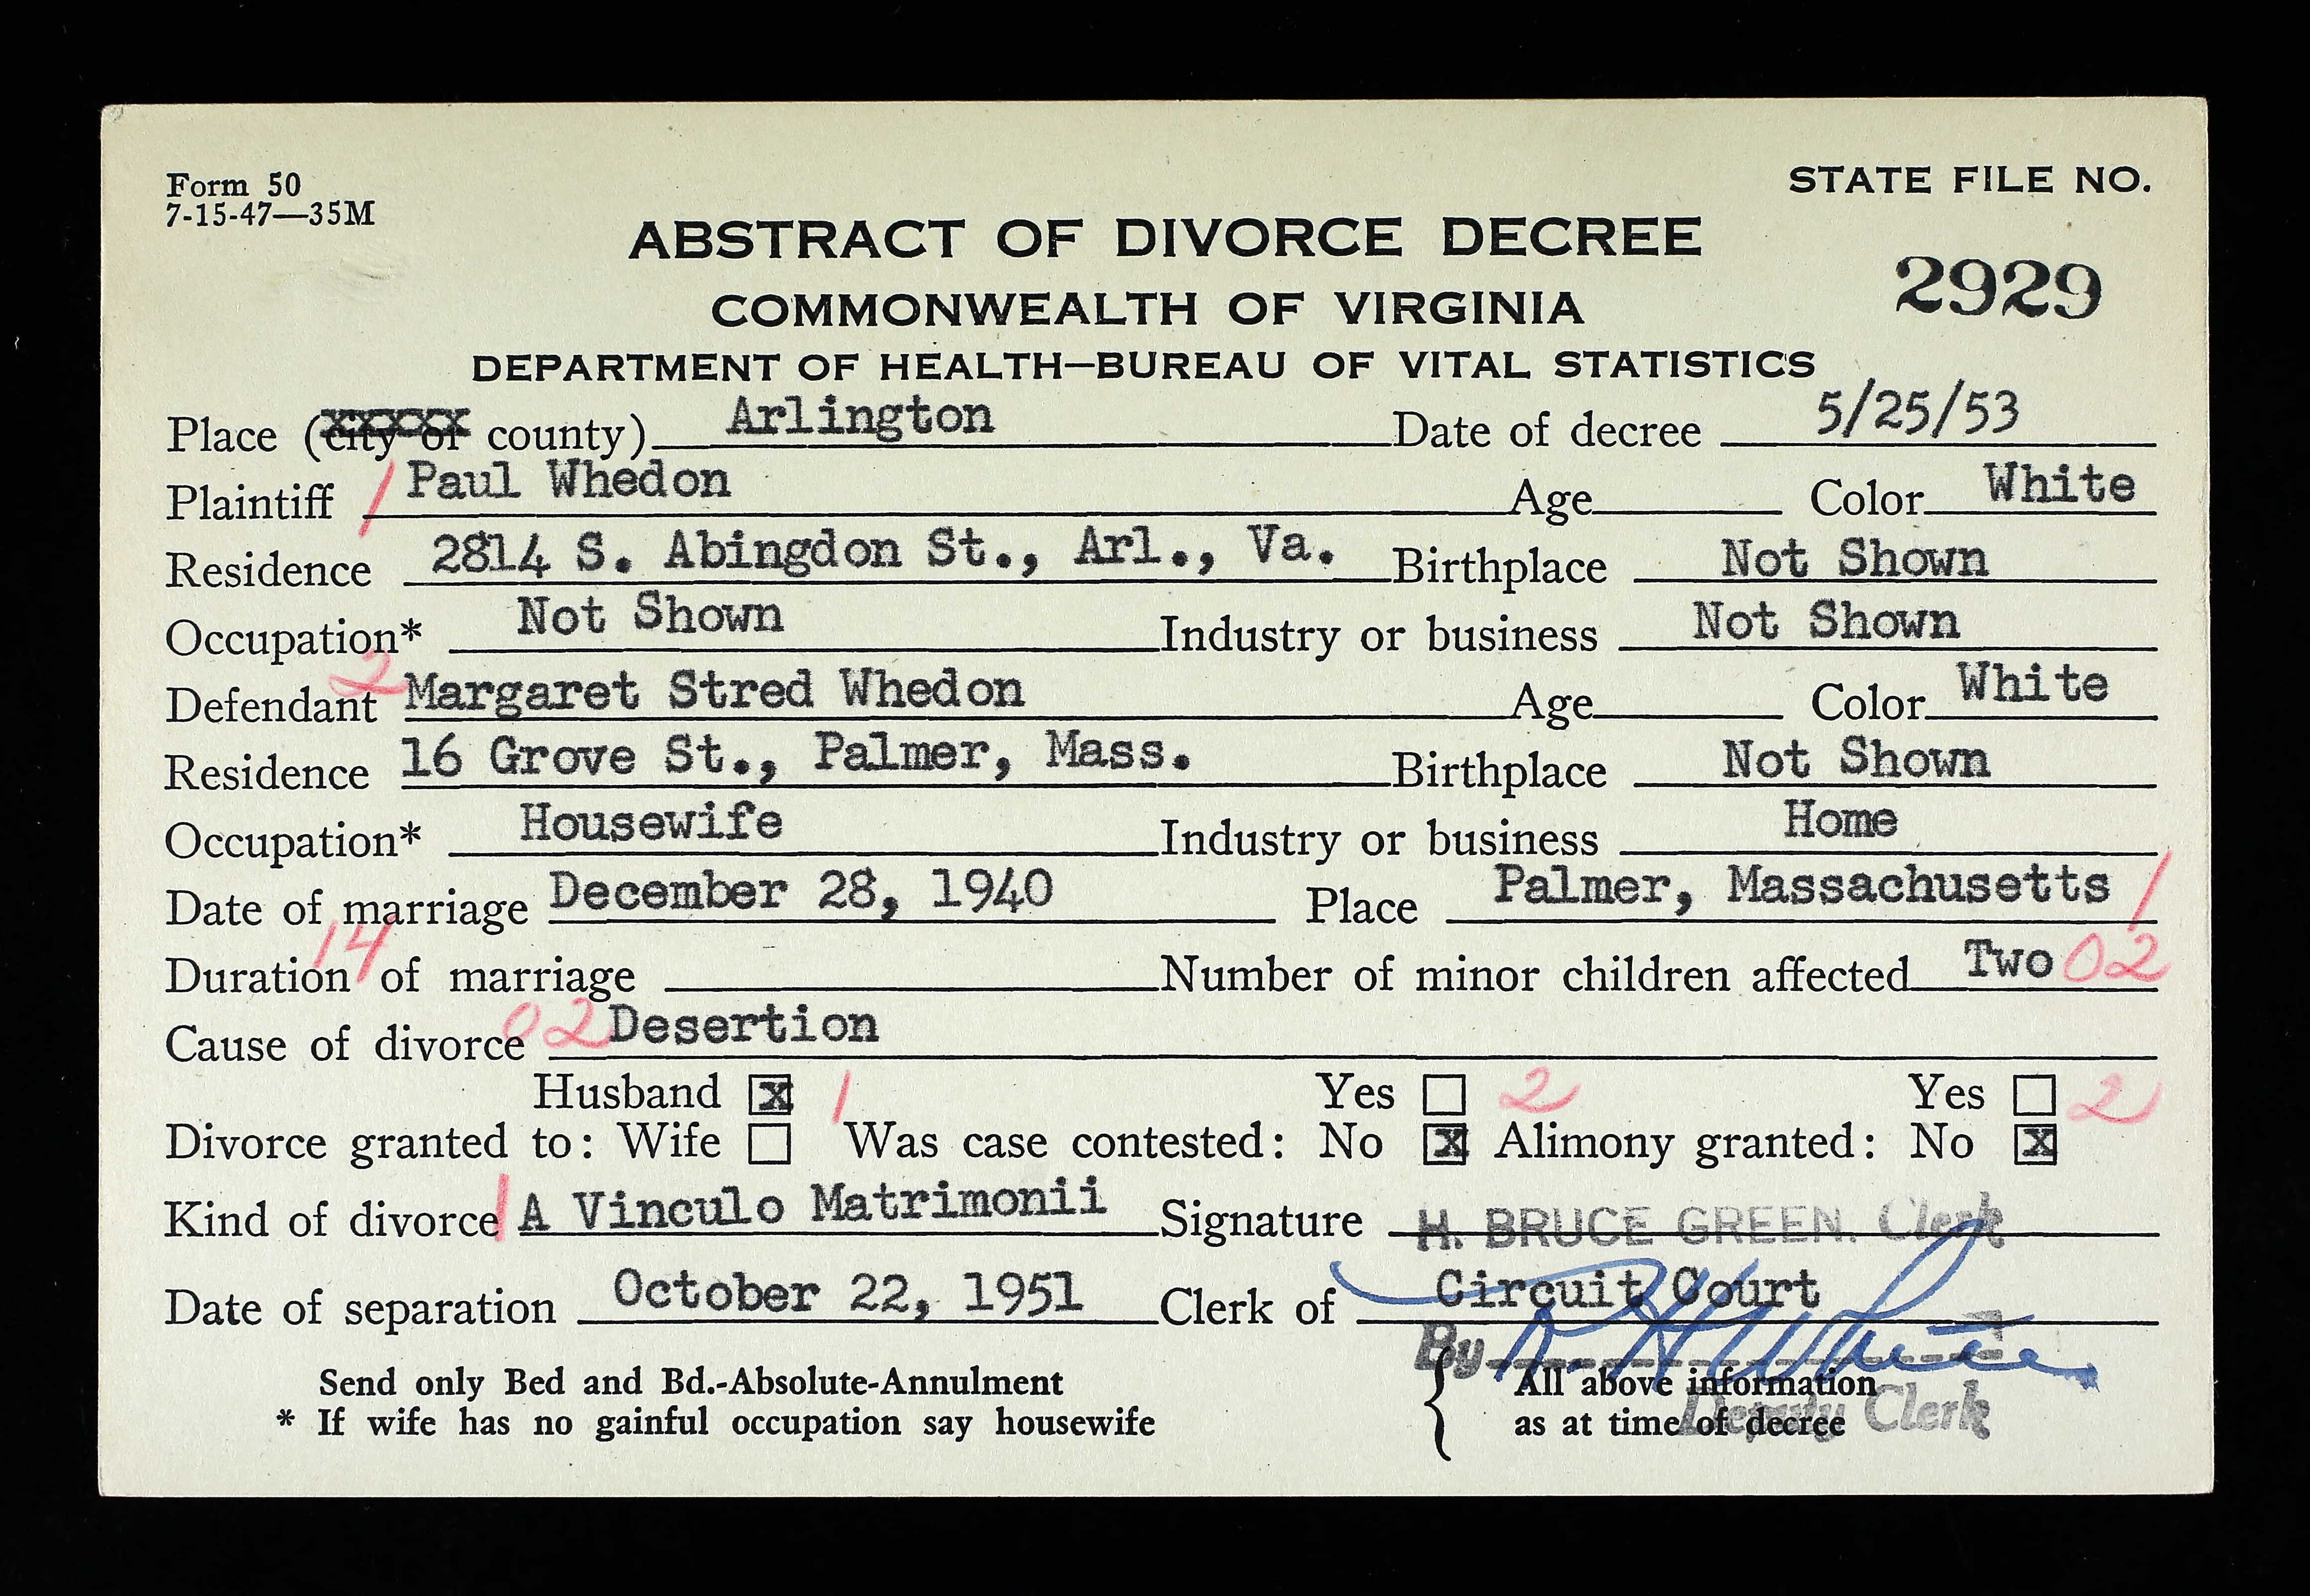 Form 50
7-15-47—35M
STATE FILE NO.
ABSTRACT OF DIVORCE DECREE
2929
COMMONWEALTH OF VIRGINIA
DEPARTMENT OF HEALTH—BUREAU OF VITAL STATISTICS
Place (city or county) Arlington Date of decree 5/25/53
Plaintiff 1 Paul Whedon Age Color White
Residence 2814 S. Abingdon St., Arl., Va. Birthplace Not Shown
Occupation* Not Shown Industry or business Not Shown
Defendant 2 Margaret Stred Whedon Age Color White
Residence 16 Grove St., Palmer, Mass. Birthplace Not Shown
Occupation* Housewife Industry or business Home
Date of marriage December 28, 1940 Place Palmer, Massachusetts 1
Duration of marriage 14 Number of minor children affected Two 02
Cause of divorce 02 Desertion
Husband x 1 Yes 2 Yes 2
Divorce granted to: Wife Was case contested: No x Alimony granted: No x
Kind of divorce 1 A Vinculo Matrimonii Signature H. BRUCE GREEN. Clerk
Date of separation October 22, 1951 Clerk of Circuit Court
By
Send only Bed and Bd.-Absolute-Annulment All above information
* If wife has no gainful occupation say housewife as at time of decree
Deputy Clerk